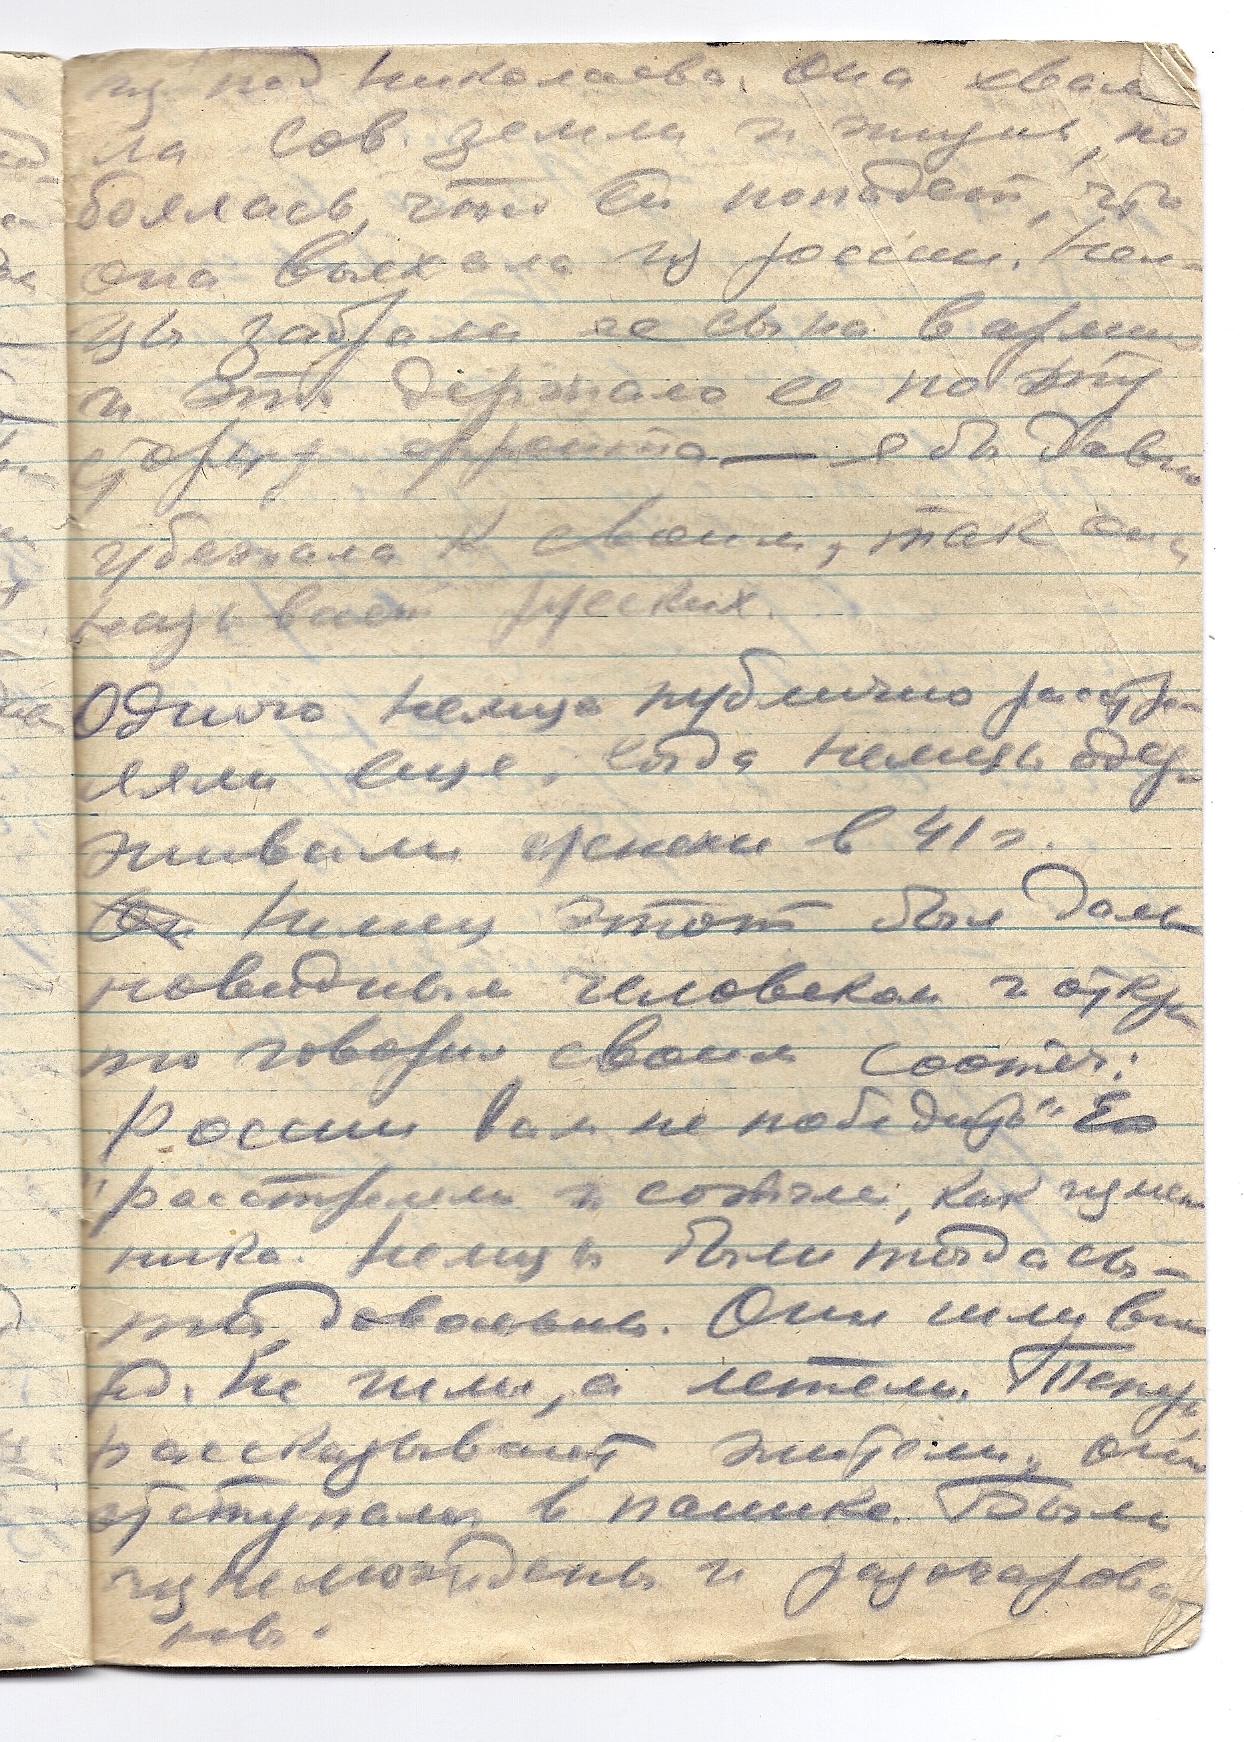 из под Николаева. Она хвали
ла сов. земли и жизнь, но
боялась, что ей попадет, что
она выехала из россии. Нем-
цы забрали ее сына в армию
и это держало ее по эту
сторону фронта — я бы давно
убежала к своим, так она
называет русских.
Одного немца публично расстре
ляли еще, когда немцы одер-
живали успехи в 41 г.
Немец этот был даль
новидным человеком и откры
то говорил своим соотеч:
России вам не победить" Его
"расстреляли и сожгли, как измен
ника. Немцы были тогда сы-
ты, довольны. Они шли
Не шли, а летели. Теперь
рассказывают жители, они
отступали в панике. Были
изнеможденны и разочарова
ны.